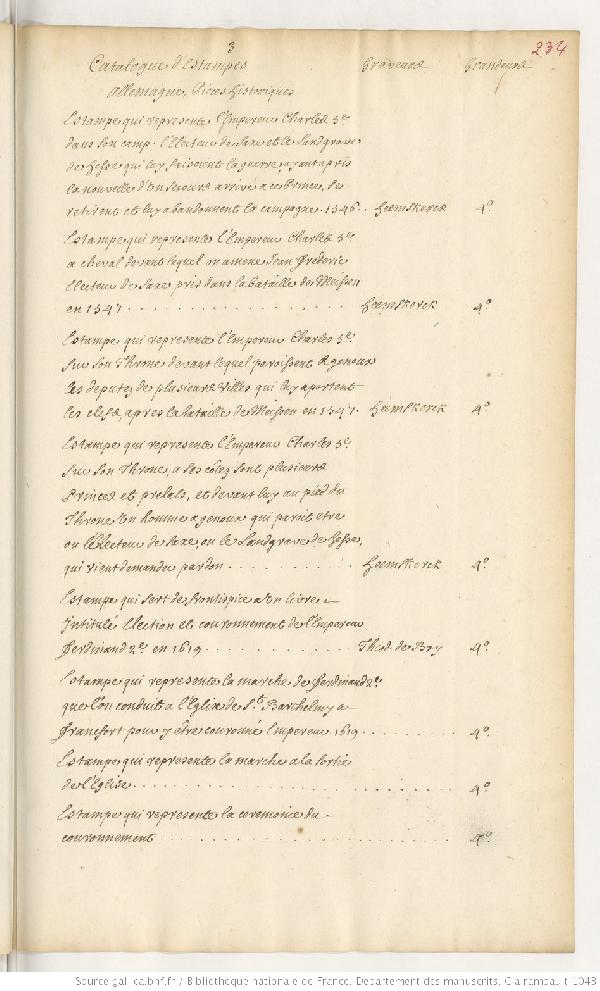 3
234
Catalogue d'Estampes Graveurs Grandeurs
Allemagne, Pieces historiques
Estampe qui represente l'Empereur Charles 5e
dans son camp. l'Electeur de Saxe et le Landgrave
de Hesse qui luy faisoient la guerre, ayant apris
la nouvelle d'un secours arrivé a ce Prince, se
retirent et luy abandonnent la campagne. 1546. Heemskerck 4o
Estampe qui represente l'Empereur Charles 5e
a cheval devant lequel on amene Jean Frederic
Electeur de Saxe pris dans la bataille de Meissen
en 1547. Heemskerck 4o
Estampe qui represente l'Empereur Charles 5e
sur son Throne devant lequel paroissent a genoux
les deputez de plusieurs villes qui luy aportent
les clefs, apres la bataille de Meissen en 1547. Heemskerck 4o
Estampe qui represente l'Empereur Charles 5e
sur son Throne, a ses côtez sont plusieurs
Princes et prelats, et devant luy au pied du
Throne un homme a genoux qui paroit etre
ou l'Electeur de Saxe, ou le Landgrave de Hesse,
qui vient demander pardon Heemskerck 4o
Estampe qui sert de frontispice a un livre
Intitulé Election et couronnement de l'Empereur
Ferdinand 2e en 1619 Theod. de Bry 4o
Estampe qui represente la marche de Ferdinand 2e
que l'on conduit a l'Eglise de St. Barthelmy a
francfort pour y etre couronné Empereur 1619 4o
Estampe qui represente la marche a la sortie
de l'Eglise 4o
Estampe qui represente la ceremonie du
couronnement 4o
Source gallica.bnf.fr / Bibliothèque nationale de France. Département des manuscrits. Clairambault 1043